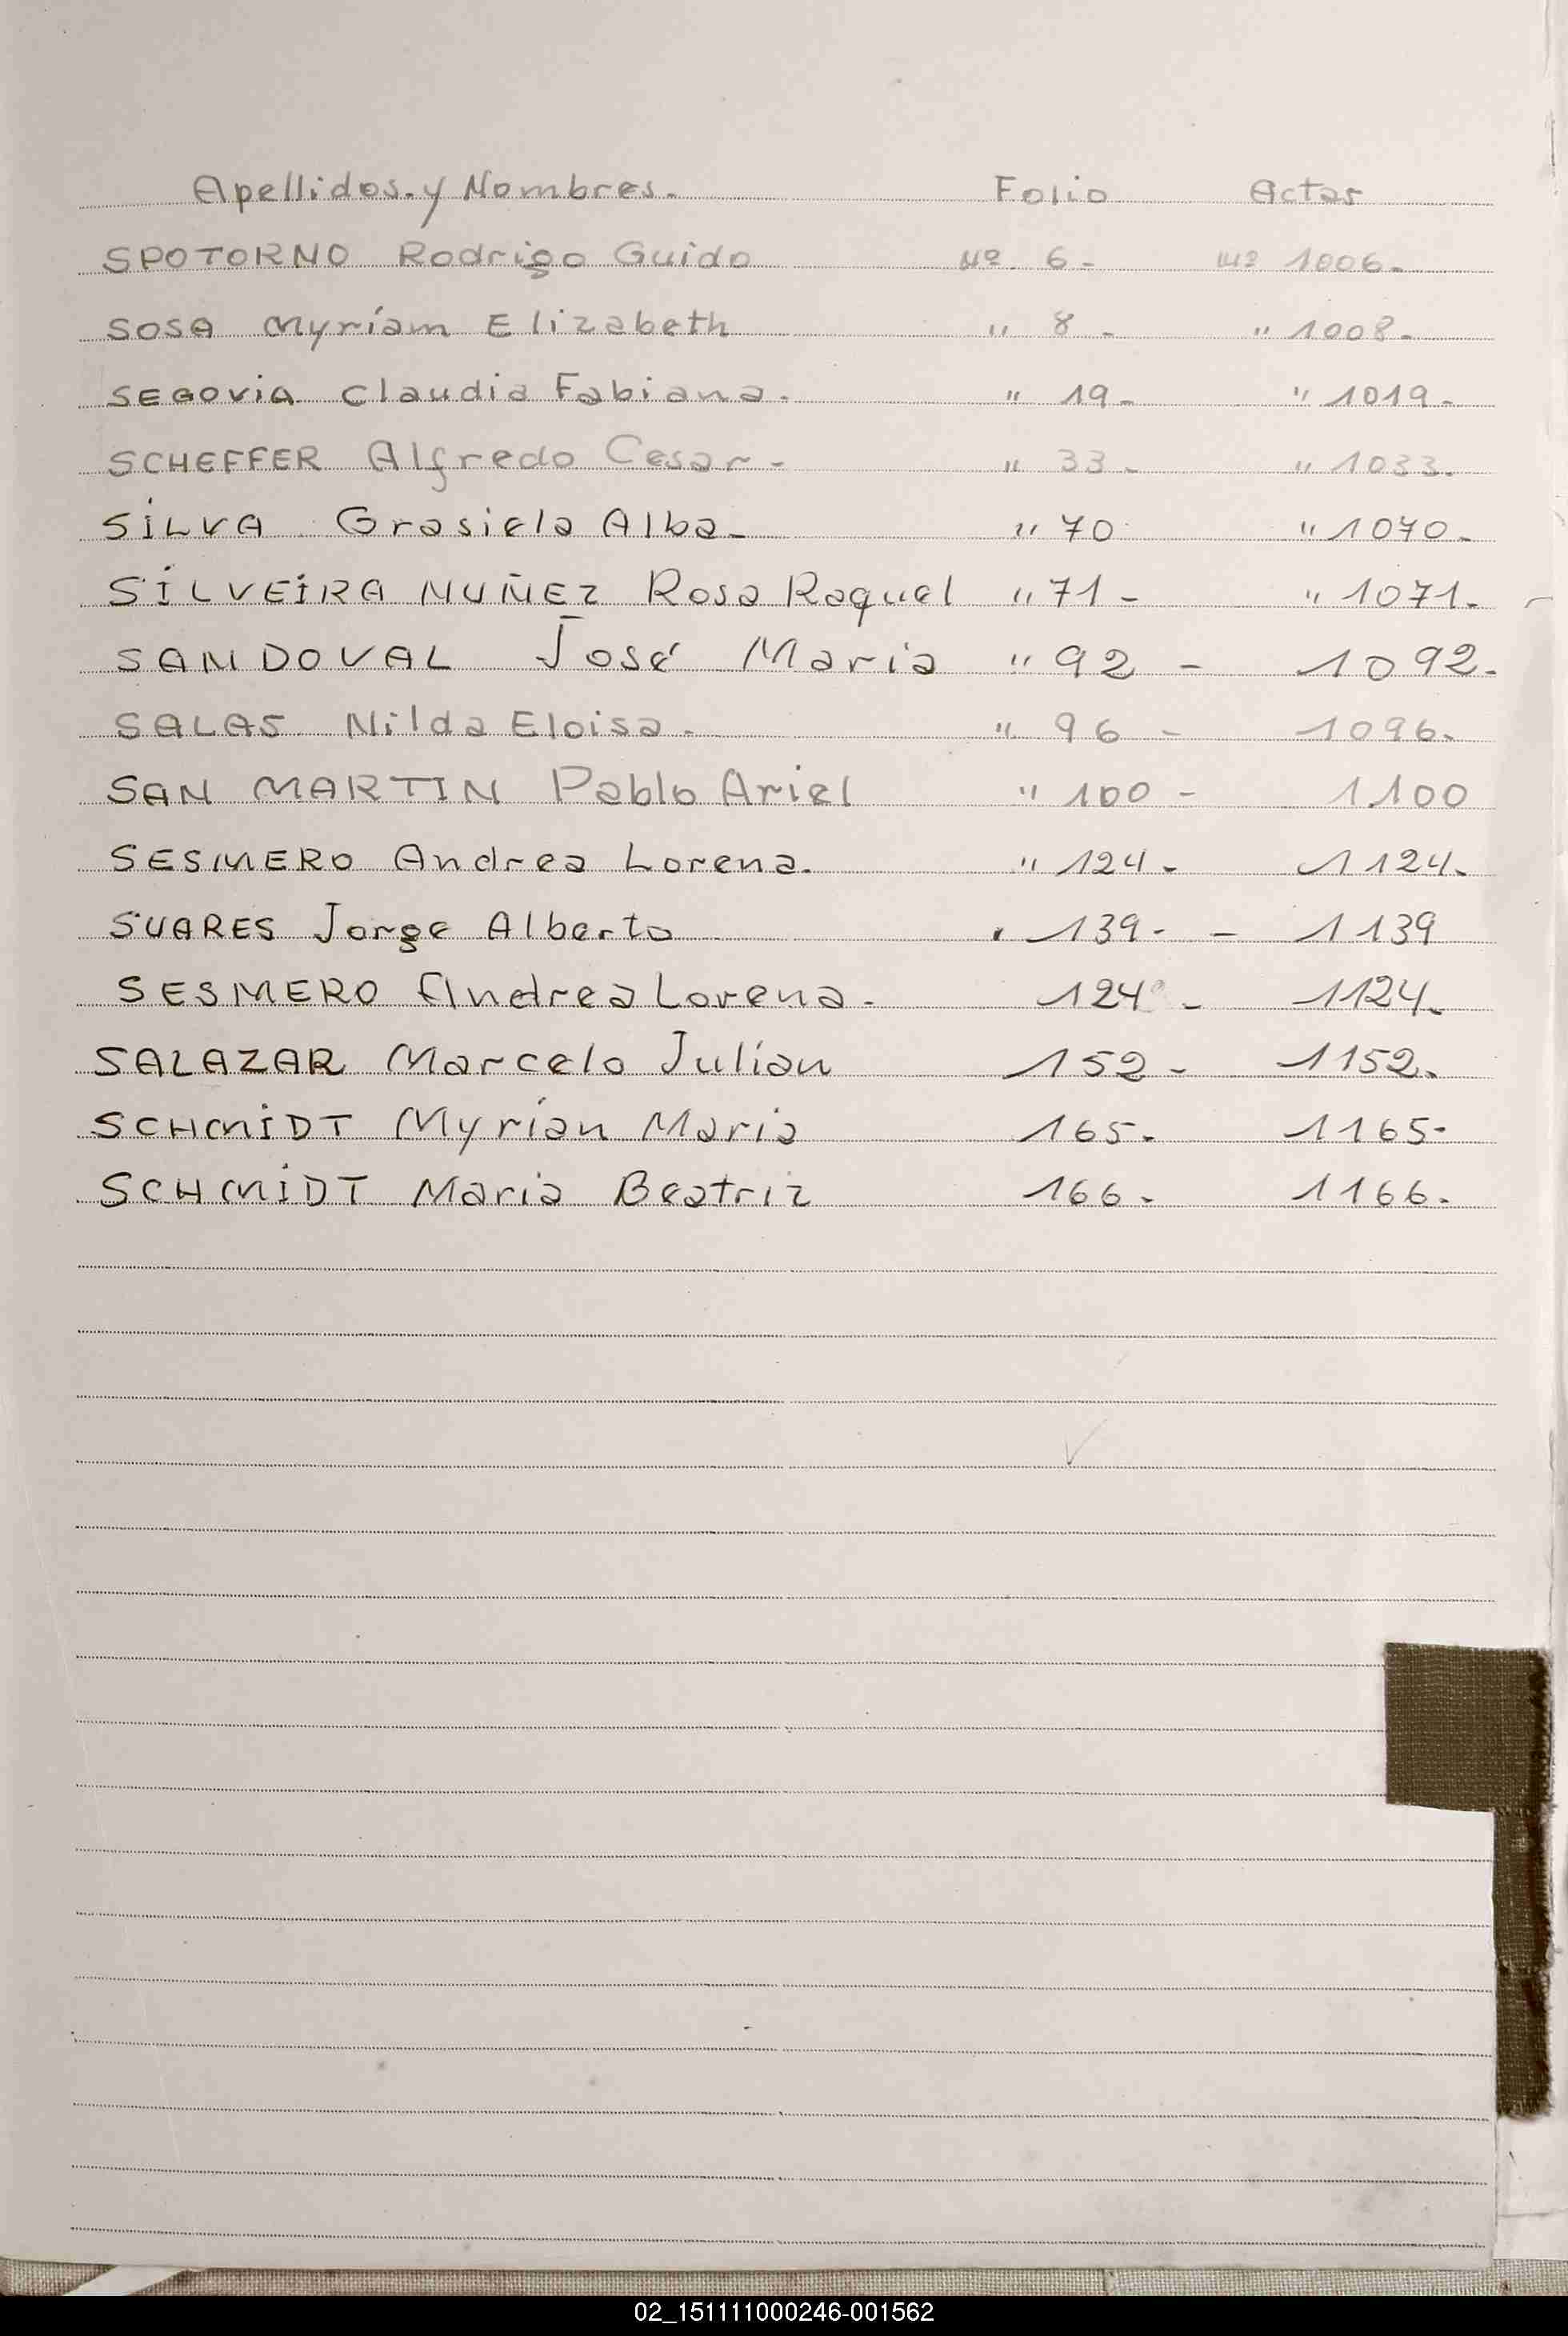 Apellidos.y Nombres. Folio Actas
SPOTORNO Rodrigo Guido Nº 6- Nº 1006-
SOSA Myriam Elizabeth " 8- " 1008-
SEGOViA Claudia Fabiana. " 19- " 1019-
SCHEFFER Alfredo Cesar- " 33- " 1033-
SiLVA Grasiela Alba- " 70 " 1070-
SiLVEiRA NUÑEZ Rosa Raquel " 71- " 1071-
SANDOVAL José Maria " 92- 1092-
SALAS Nilda Eloisa. " 96- 1096-
SAN MARTIN Pablo Ariel " 100- 1100
SESMERO Andrea Lorena. " 124- 1124-
SUARES Jorge Alberto 139- - 1139
SESMERO Andrea Lorena- 124- 1124-
SALAZAR Marcelo Julian 152- 1152-
SCHMiDT Myrian Maria 165- 1165-
SCHMiDT Maria Beatriz 166- 1166-
02_151111000246-001562